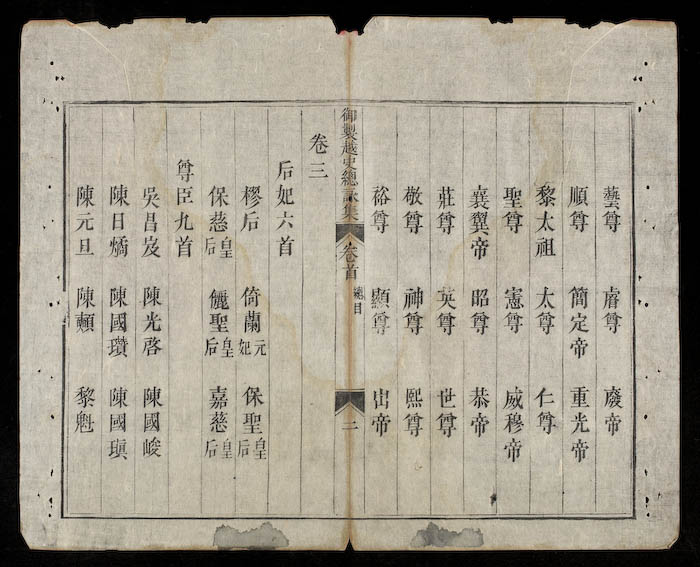 藝尊 睿尊 廢帝
順尊 簡定帝 重光帝
黎太祖 太尊 仁尊
聖尊 憲尊 威穆帝
襄翼帝 昭尊 恭帝
莊尊 英尊 世尊
敬尊 神尊 熙尊
裕尊 顯尊 出帝
御製越史總詠集 卷首 總目 二
卷三
后妃六首
樛后 倚蘭元妃 保聖皇后
保慈皇后 儷聖皇后 嘉慈皇后
尊臣九首
吳昌岌 陳光啓 陳國峻
陳日燏 陳國瓚 陳國瑱
陳元旦 陳顥 黎魁